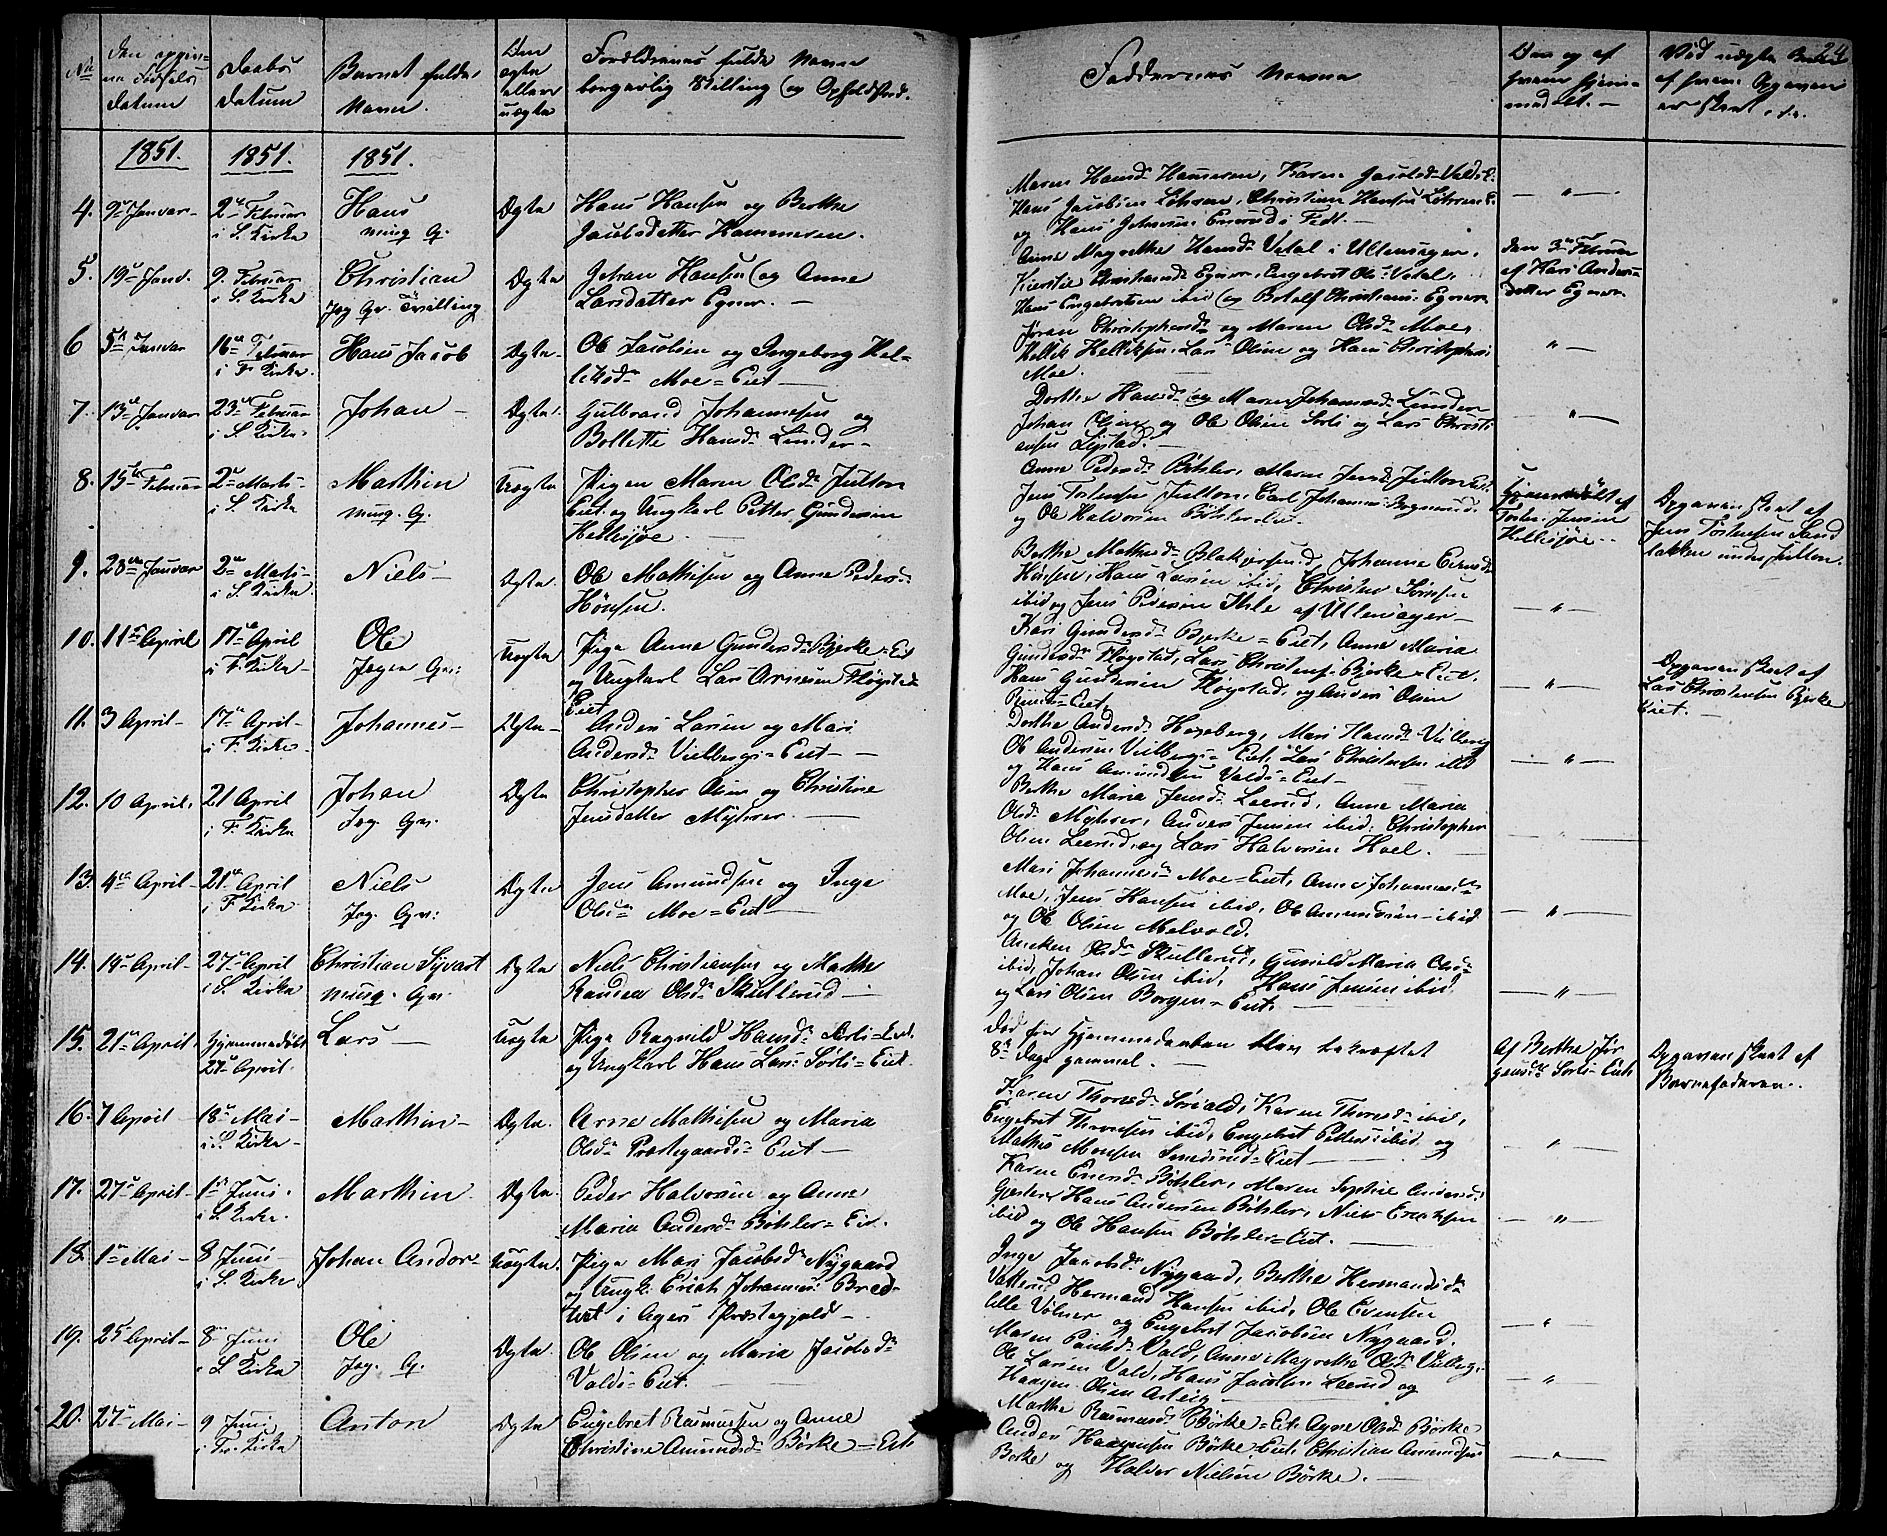 24
No
Den opgivne Fødsels Datum
Daabs Datum
Barnet fulde Navn.
Om ægte eller uægte
Forældrenes fulde Navne borgerlig Stilling og Opholdsted.
Faddernes Navne
Om og af hvem hjemmedøbt. —
Ved uægte Barn af hvem Opgaven er skeet
1851.
1851.
1851.
4. 9de Januar
2den Februar i S. Kirke
Hans
Ægte
Hans Hansen og Berthe
Jacobsdatter Hammeren.
Hans Jacobsen Løhren, Christian Hansen Løhren
5. 19de Janr.
9. Februar i S. Kirke
Christian
Tvilling
Ægte
Johan Hansen og Anne
Larsdatter Egner. —
Anne Magrethe Hansd. Vetal i Ullensager,
Kierstie Christiansd. Egner, Engebret Ols. Vetal,
Hans Engebretsen ibid og Botolf Christians. Egner
den 3de Februar
af Kari Anders-
datter Egner
6 5te Januar
16de Februar i F. Kirke
Hans Jacob
Ægte
Ole Jacobsen og Ingeborg Hel-
liksd. Moe=Eiet
Jøran Christophersd. og Maren Olsd. Moe,
Hellik Helliksen, Lars Olsen og Hans Christophers.
Moe.
7. 13de Januar
23de Februar i S. Kirke
Johan
Ægte
Gulbrand Johannesen og
Bollette Hansd. Linder
Johan Olsen og Ole Olsen Sorli og Lars Christi
ansen
8. 15de Februar
2den Marts i S. Kirke
Marthin
Uægte
Pigen Maren Olsd. Julton
Eiet og Ungkarl Petter Gundersen
Hellesjøe.
Anne Pedersd. Bøhler, Maren Jensd. Julton Eiet
Jens Tostensen Julton, Carl Johannes.
og Ole Halvorsen Bøhler Eiet
Hjemmedøbt af
Tosten Jensen
Hellesjøe
Opgaven skeet af
Jens Tostensen Sand
bakken under Julton.
9. 28de Januar
2den Marts i S. Kirke
Niels
Ægte
Ole Mathisen og Anne Peders
Hønsen.
Hønsen, Hans Larsen ibid, Christen Sørensen
ibid og Jens Pedersen Ihle af Ullensager
10. 11te April
17de April i F. Kirke
Ole
Uægte
Pige Anne Gundersd. Bjerke=Eiet
og Ungkarl Lars Arnesen Fløgstad
Eiet
Kari Gundersd. Bjerke=Eiet, Anne Maria
Gundersd. Fløgstad, Lars Christens. Bjerke=Eiet,
Hans Gundersen Fløgstad, og Anders Olsen
Opgaven skeet af
Lars Christensen Bjerke
Eiet. —
11. 3 April
17de April i F. Kirke
Johannes
Ægte
Anders Larsen og Mari
Andersd. Vilbergs=Eiet
Dorthe Andersd. Hogeberg, Mari Hansd. Vilberg
Ole Andersen Vilbergs=Eiet, Lars Christensen ibid
og Hans Amundsen Valds=Eiet
12. 10 April
21 April i F. Kirke
Johan
Ægte
Christopher Olsen og Christine
Jensdatter Myhrer.
Berthe Maria Jensd. Leerud, Anne Maria
Olsd. Myhrer, Anders Jensen ibid, Christopher
Olsen Leerud, og Lars Halvorsen Hoel.
13. 4de April
21de April i F. Kirke
Niels
Ægte
Jens Amundsen og Inge
Olsd. Moe=Eiet
Mari Johannesd. Moe=Eiet, Anne Johannesd.
Moe, Jens Hansen ibid, Ole Amundsen ibid
og Ole Olsen Melvold.
14. 14de April
27de April i S. Kirke
Christian Syvart
Ægte
Niels Christiansen og Marthe
Randea Olsd. Skullerud
Aneken Olsd. Skullerud, Gunild Maria Olsd.
ibid, Johan Olsen ibid, Hans Jensen ibid
og Lars Olsen Borgen=Eiet.
15. 21de April
hjemmedøbt 27de April
Lars
Uægte
Pige Ragnild Hansd. Sørli=Eiet
og Ungkarl Hans Lars. Sørli=Eiet.
død før Hjemmedaaben blev bekræftet
8te Dage gammel.
Af Berthe Jør
gensd. Sørli=Eiet
Opgaven skeet af
Barnefaderen.
16. 7 April
18de Mai i S. Kirke
Marthin
Ægte
Arne Mathisen og Maria
Olsd. Præstegaards=Eiet
Karen Thorsd. Sørvald, Karen Thorsd. ibid,
Engebret Thorsen ibid, Engebret Petters. ibid og
Mathis Monsen Smedsrud=Eiet
17. 27de April
1ste Juni i S. Kirke
Marthin
Ægte
Peder Halvorsen og Anne
Maria Andersd. Bøhler=Eie.
Karen Evensd. Bøhler, Maren Sophie Andersd.
Gjester, Hans Andersen Bøhler, Niels Erichsen
ibid og Ole Hansen Bøhler=Eiet.
18. 1ste Mai
8 Juni i S. Kirke
Johan Andor
Uægte
Pige Mari Jacobsd. Nygaard
og Ungk. Erich Johannes. Bred-
tvet i Agers Præstegjeld.
Inge Jacobsd. Nygaard, Berthe Hermandsd.
Vatterud, Hermand Hansen ibid, Ole Evensen
lille Vølner og Engebret Jacobsen Nygaard.
19. 25de April
8de Juni i S. Kirke
Ole
Ægte
Ole Olsen og Maria Jacobsd.
Valds=Eiet.
Maren Paulsd. Vald, Anne Magrethe Olsd. Vilberg,
Ole Larsen Vald, Hans Jacobsen Leerud og
Haagen Olsen
20. 27de Mai
9 Juni i Fr. Kirke
Anton
Ægte
Engebret Rasmussen og Anne
Christine Amundsd. Børke=Eiet
Marthe Rasmusd. Børke=Eiet, Agne Olsd. Børke
Anders Hansen Børke=Eiet, Christian Amundsen
Børke og Halvor Nielsen Børke.